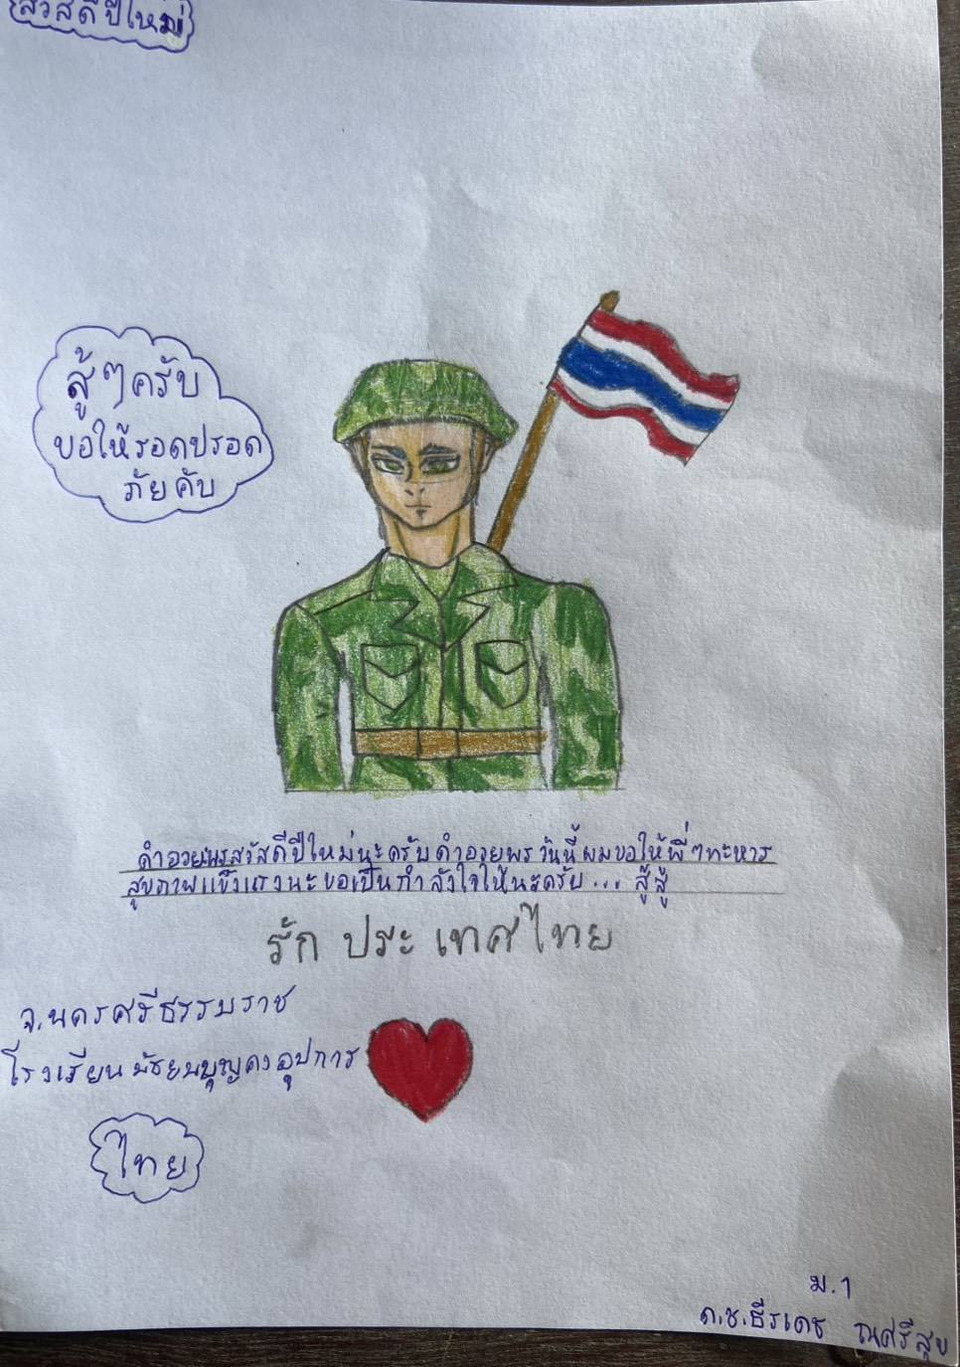 สวัสดีปีใหม่
สู้ๆครับ
ขอให้รอดปรอด
ภัยคับ
คำอวยพรสวัสดีปีใหม่นะครับคำอวยพรวันนี้ผมขอให้พี่ๆทะหาร
สุขภาพแข็งแรงนะขอเป็นกำลังใจให้นะครับ... สู้สู้
รัก ประเทศไทย
จ.นครศรีธรรมราช
โรงเรียนมัธยมบุญคงอุปการ
ไทย
ม.1
ด.ช.ธีรเดช ณศรีสุข